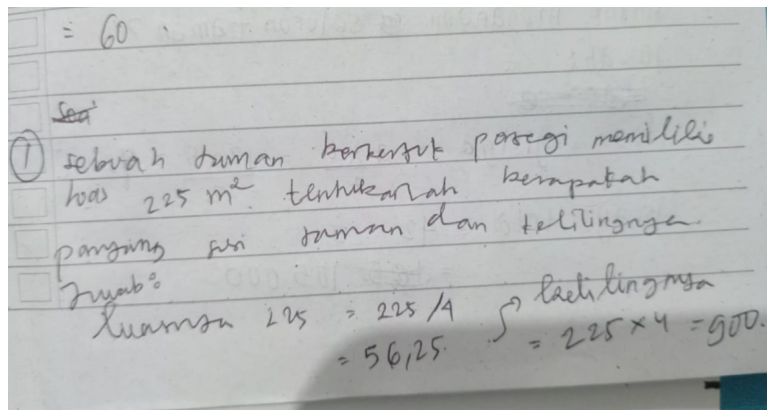 = 60
①  sebuah taman berbentuk persegi memiliki
luas 225 m². tentukanlah berapakah
panjang sisi taman dan kelilingnya.
Jwab:
luasnya 225 = 225/4
= 56,25.
kelilingnya
= 225 × 4 = 900.